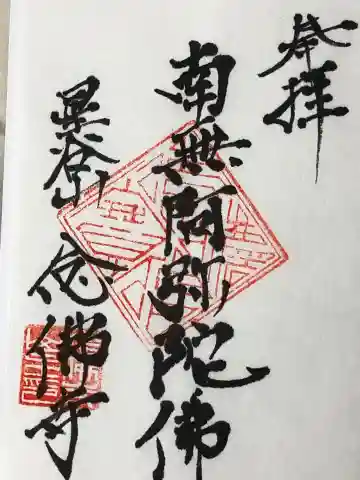 奉拝
南無阿弥陀佛
星谷山 念佛寺